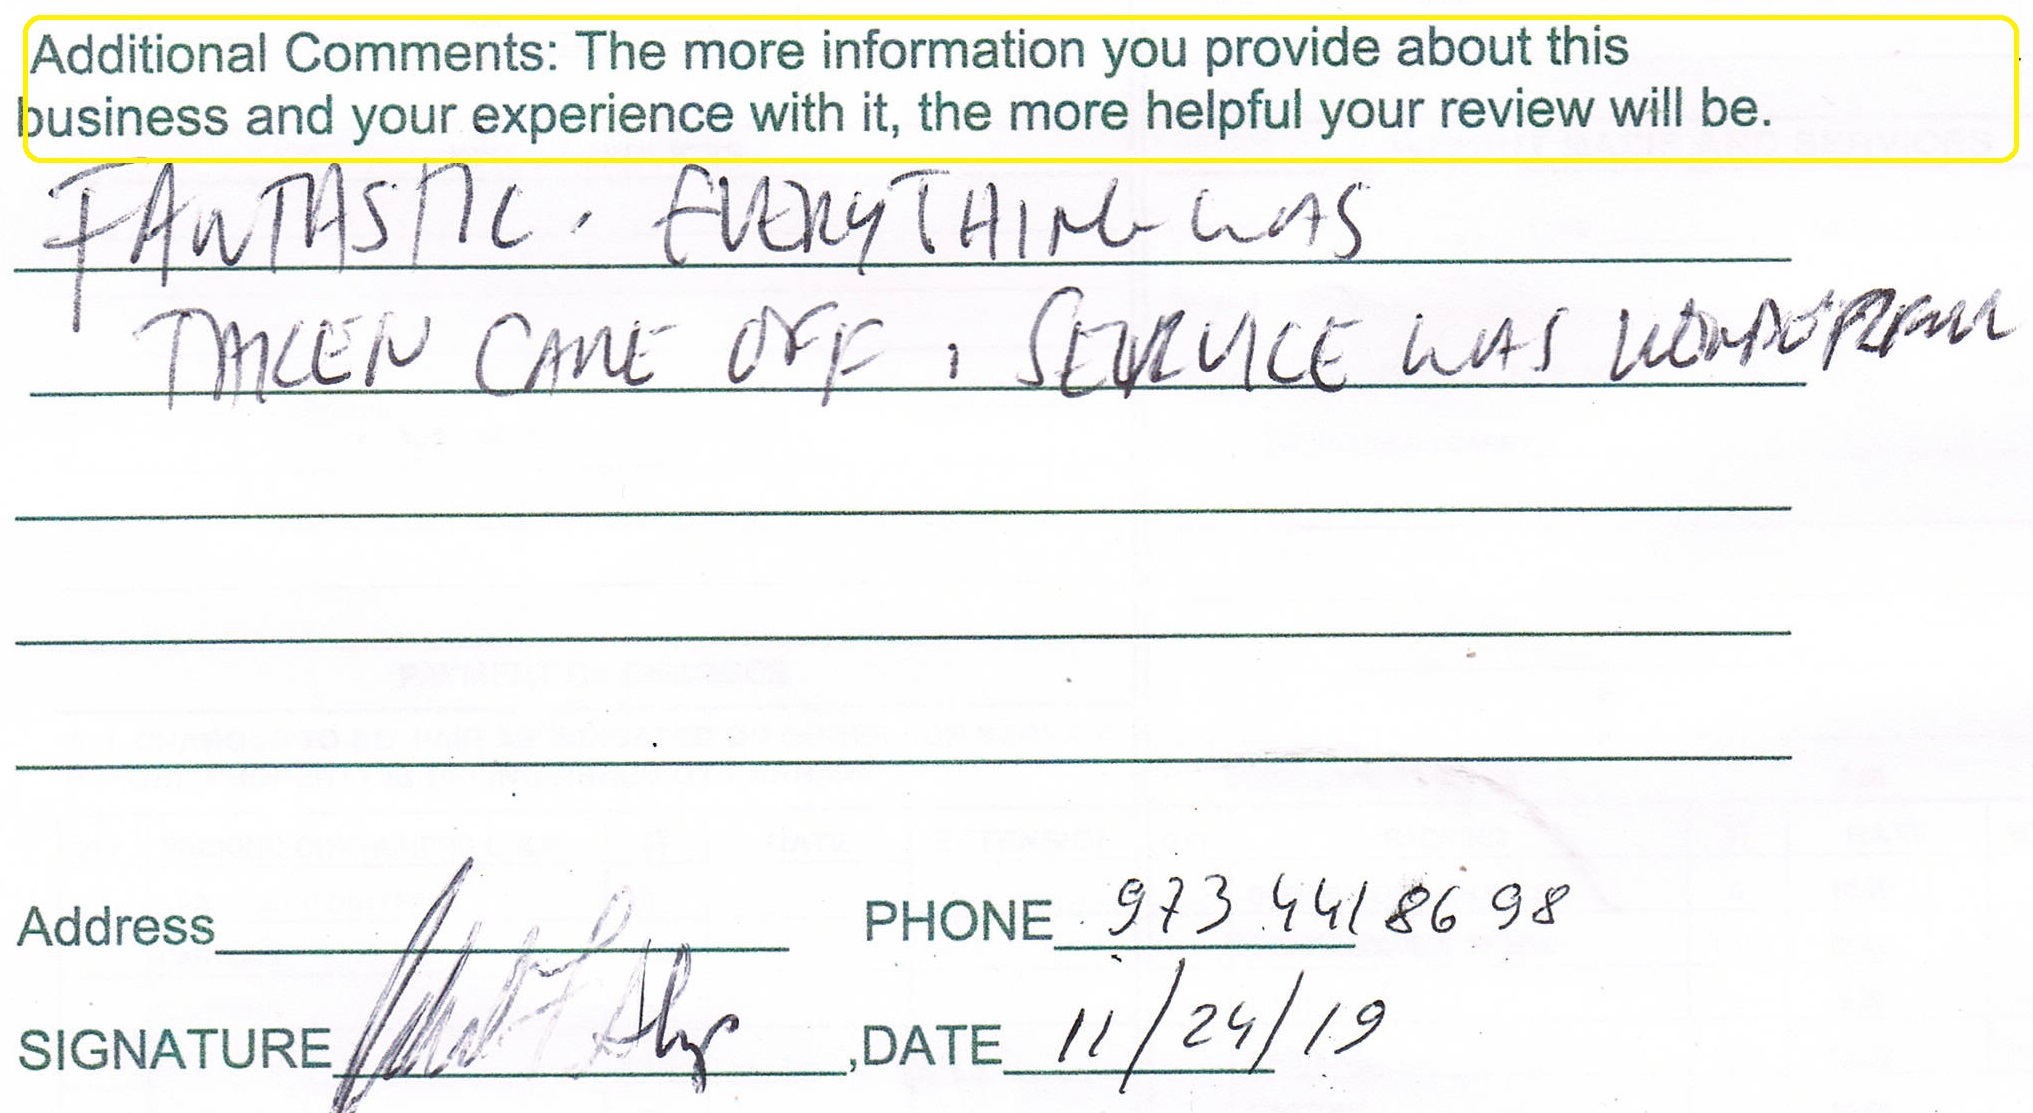 Additional Comments: The more information you provide about this
business and your experience with it, the more helpful your review will be.
FANTASTIC. EVERYTHING WAS
TAKEN CARE OFF, SERVICE WAS WONDERFULL
Address PHONE 973 441 8698
SIGNATURE ,DATE 11/24/19